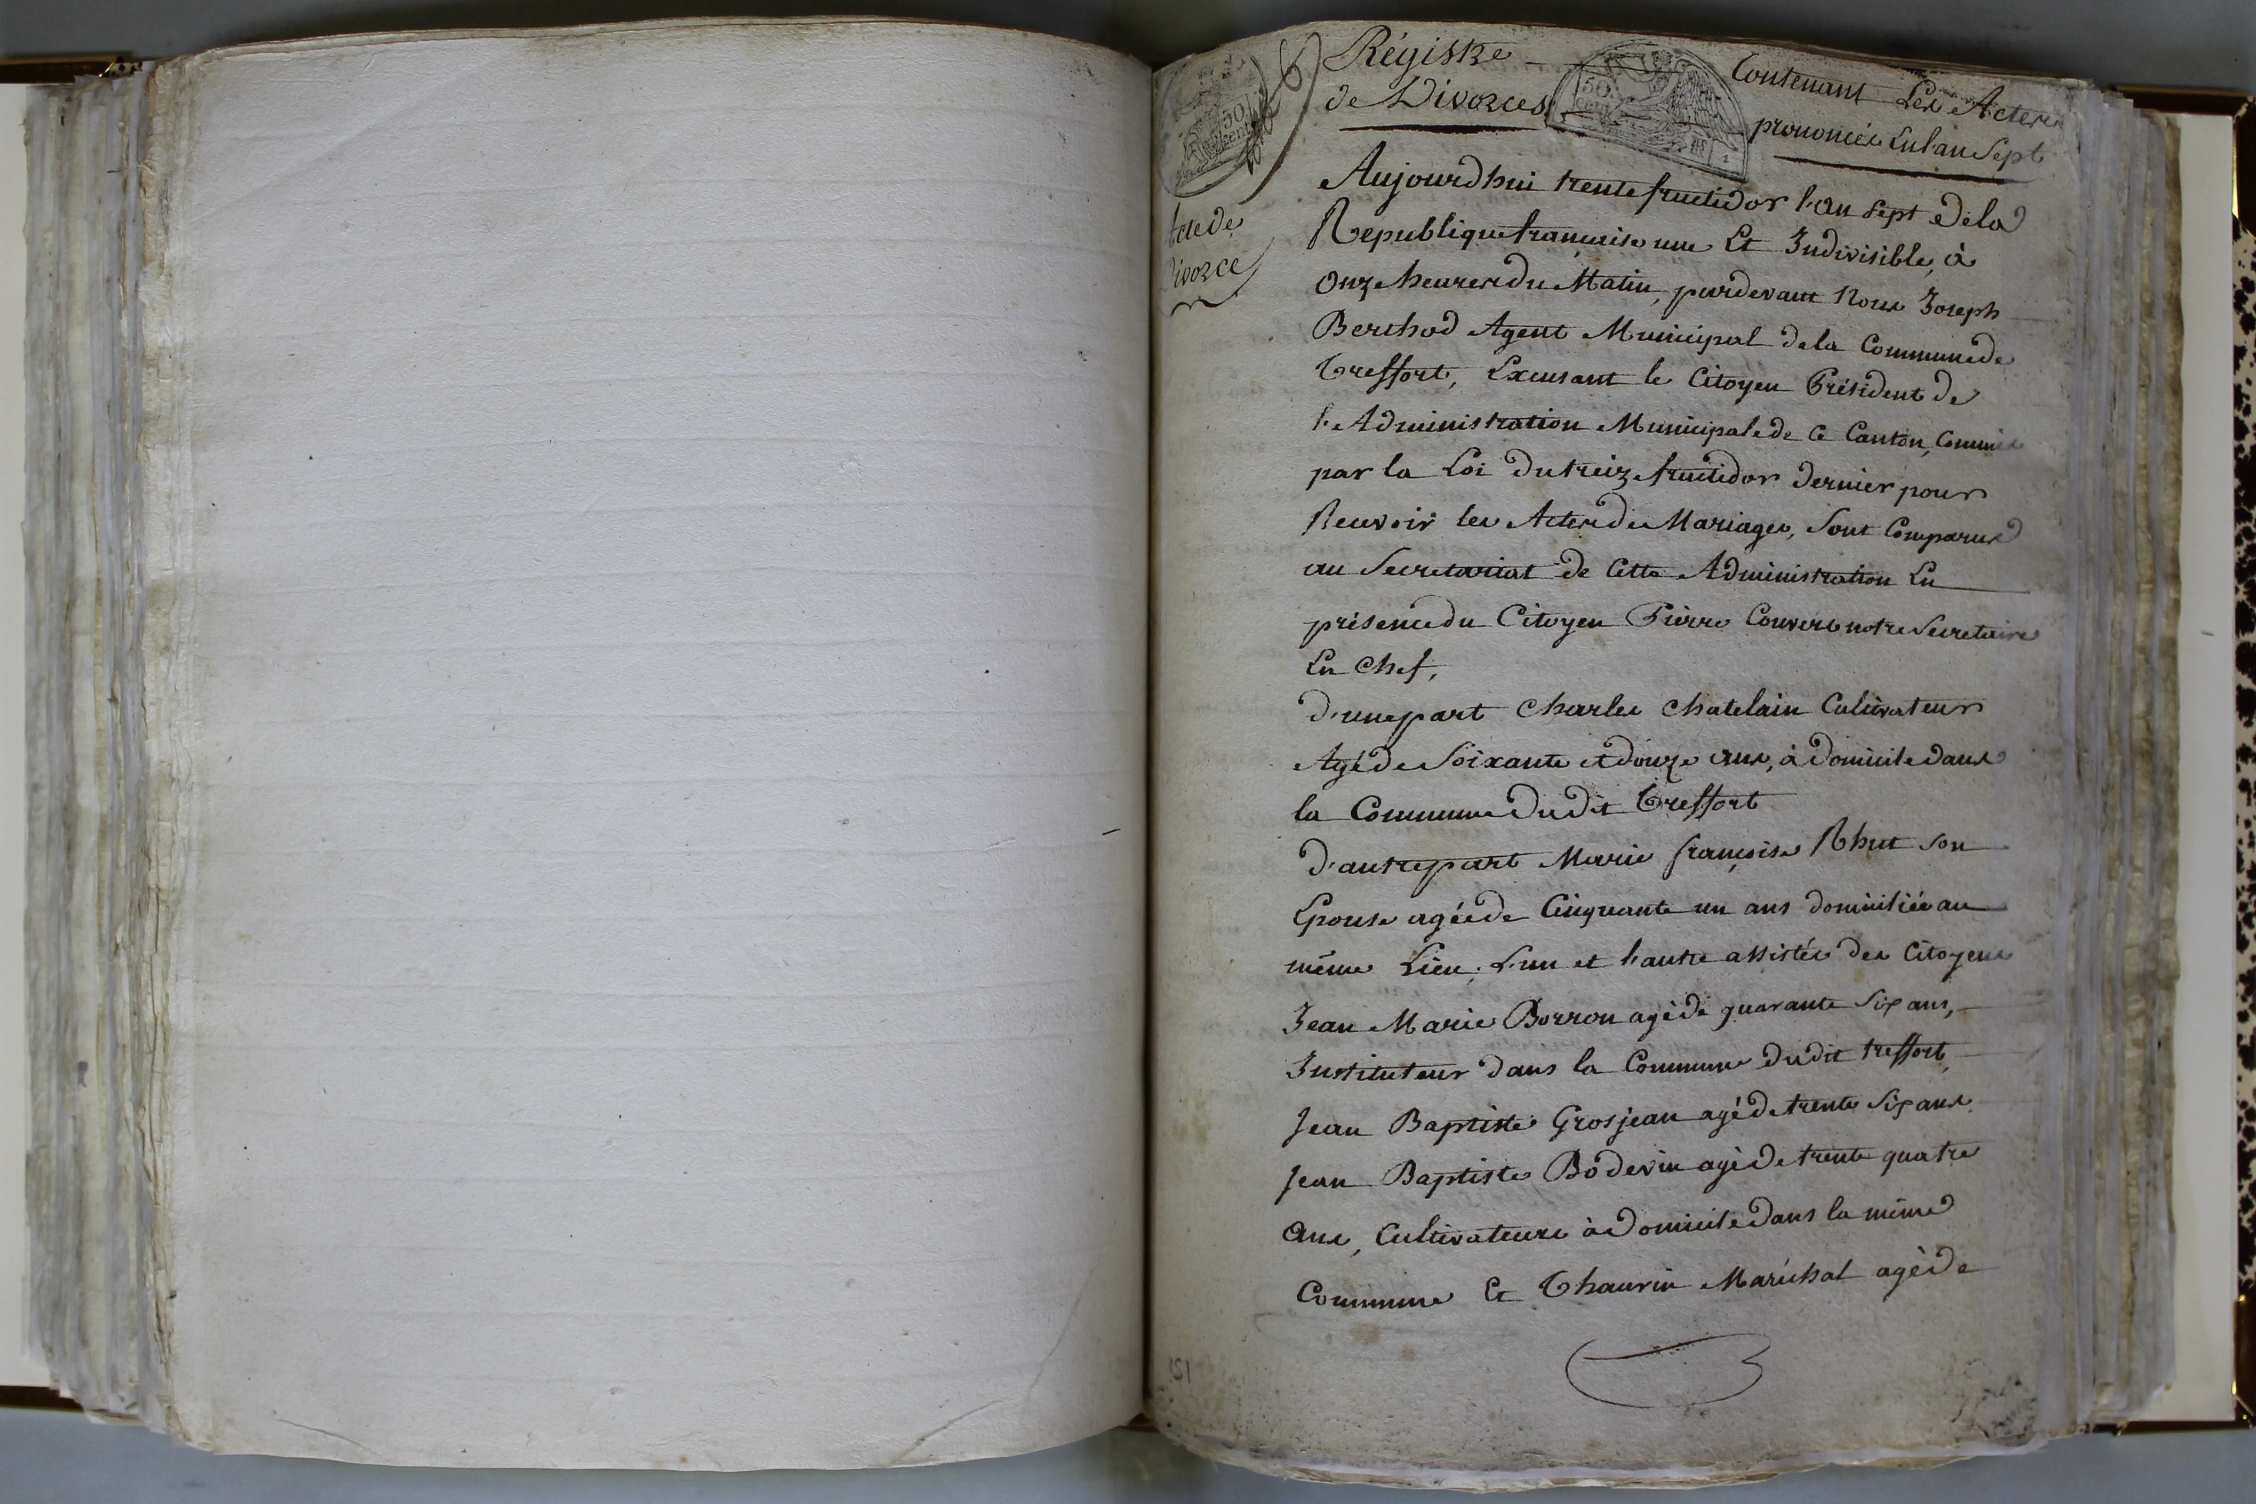 Régistre
de Divorces
Contenant Les Actes
prononcés En l'an Sept
Acte de
Divorce
Aujourd'hui trente fructidor l'an sept de la
Republique française une Et Indivisible, à
onze heures du Matin, pardevant Nous Joseph
Berthod Agent Municipal de la Commune de
Treffort, Excusant le Citoyen Président de
l'Administration Municipale de ce Canton, Commis
par la Loi du treize fructidor dernier pour
Recevoir les Actes de Mariages, sont Comparus
au Secretariat de Cette Administration En
présence du Citoyen Pierre Convert notre Secretaire
En Chef,
d'une part Charles Chatelain Cultivateur
Agé de Soixante et douze ans, à domicile dans
la Commune dudit Treffort
d'autre part Marie françoise Rhut son
Epouse agée de Cinquante un ans domiciliée au
même Lieu; L'un et l'autre assistés des Citoyens
Jean Marie Borron agé de quarante Six ans,
Instituteur dans la Commune dudit treffort,
Jean Baptiste Grosjean agé de trente Six ans
Jean Baptiste Bodevin agé de trente quatre
ans, Cultivateurs à domicile dans la même
Commune Et Thaurin Maréchal agé de
151